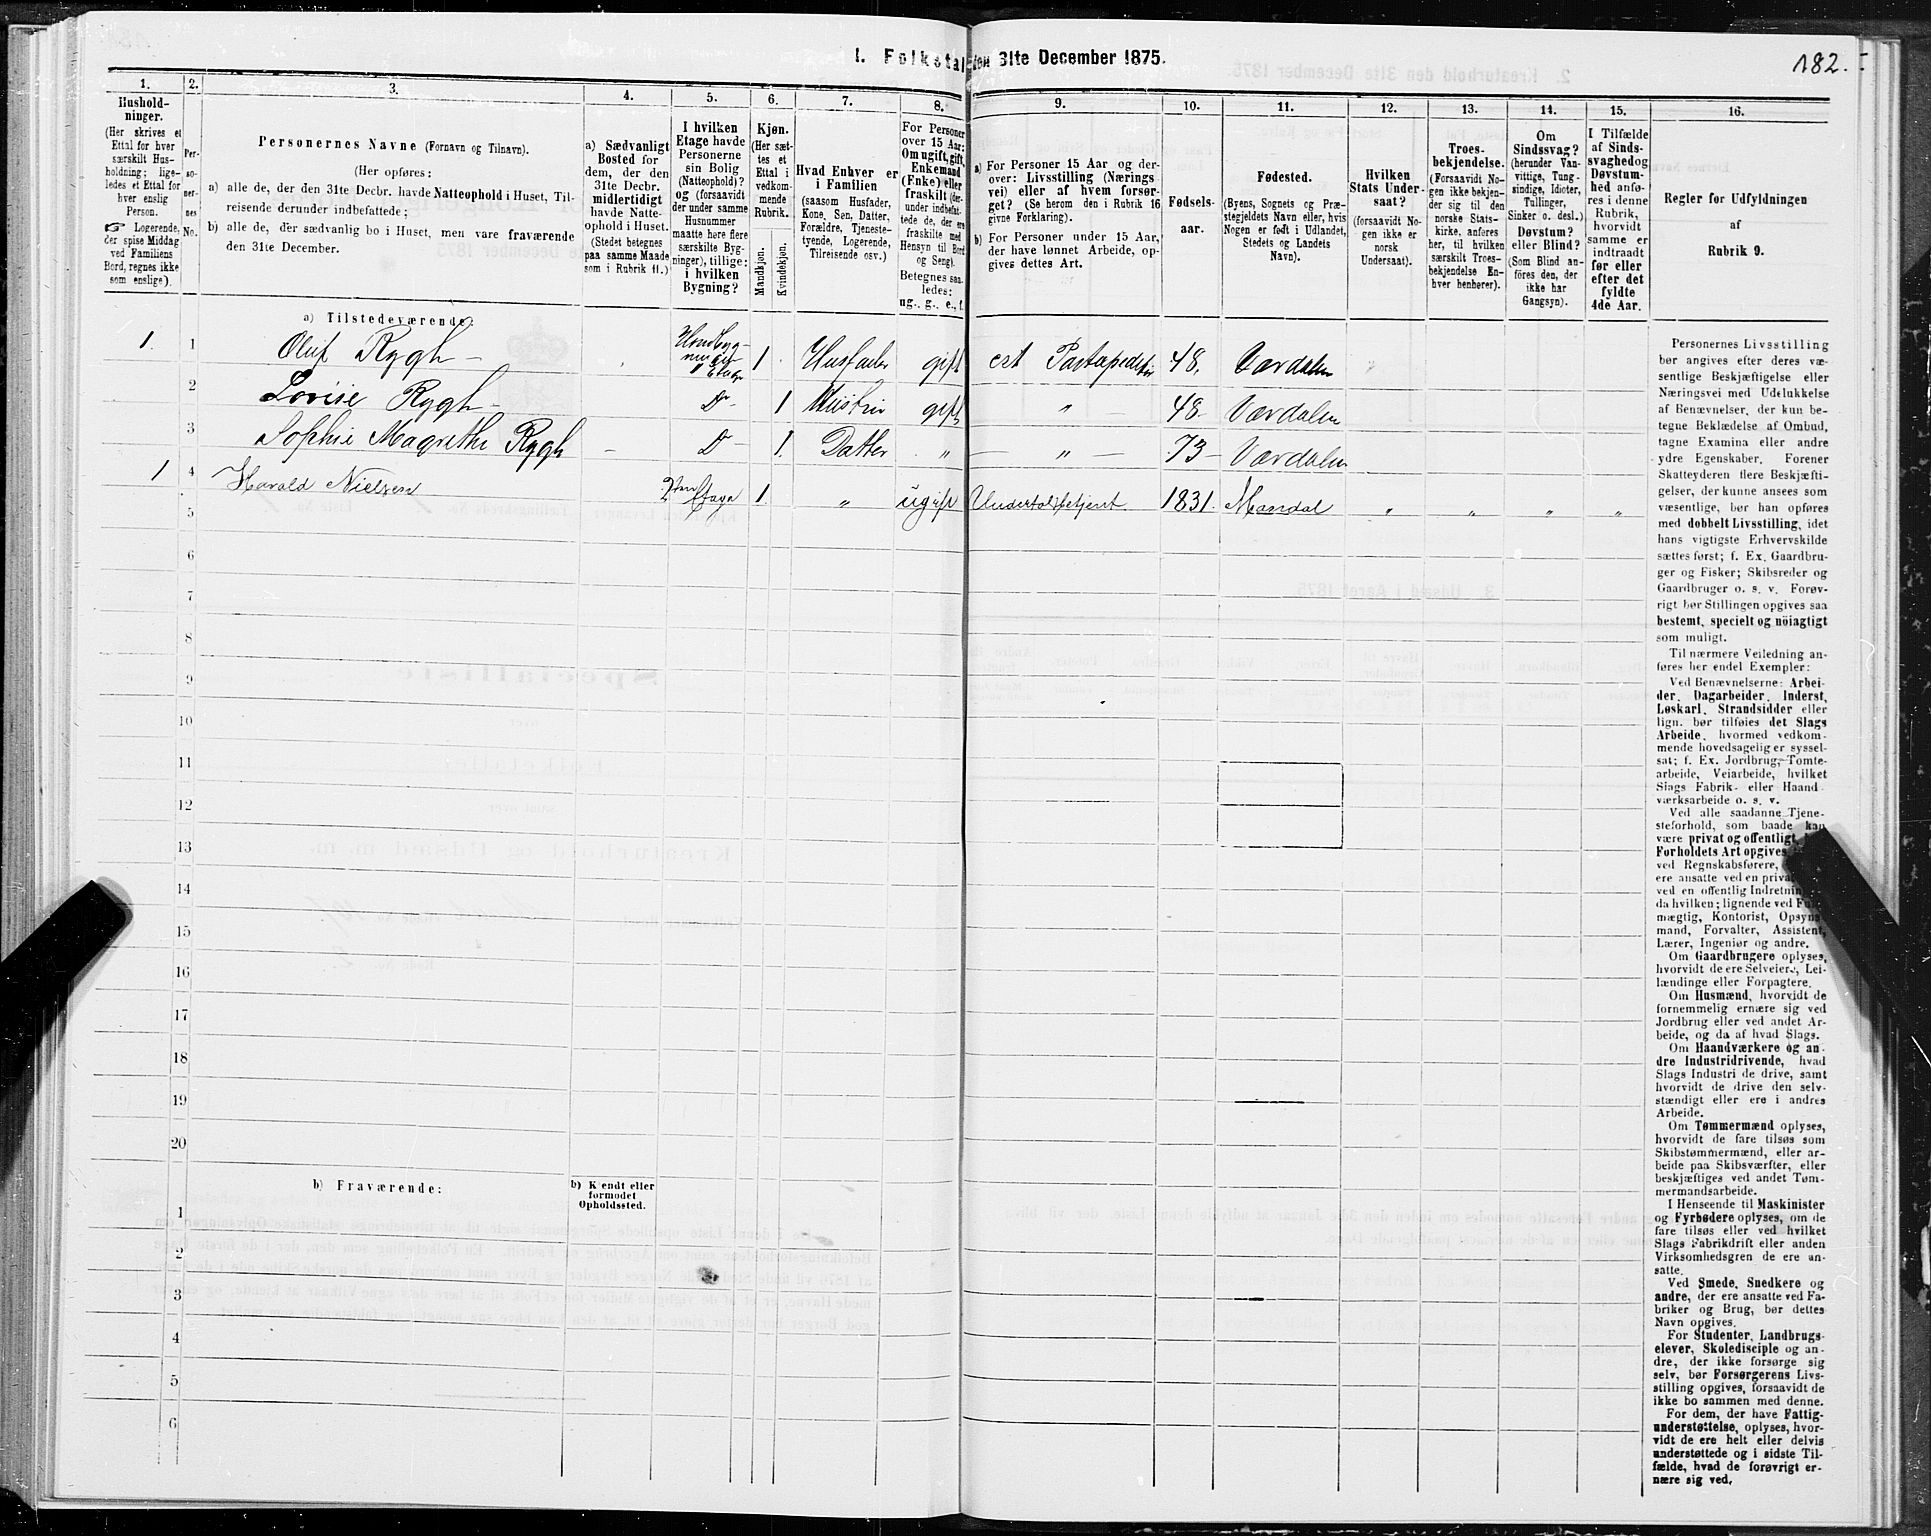 182.
1. Folketal den 31te December 1875.
1. 2. 3. 4. 5. 6. 7. 8. 9. 10. 11. 12. 13. 14. 15. 16.
Hushold-
ninger.
(Her skrives et
Ettal for hver
særskilt Hus-
holdning; lige-
ledes et Ettal for
hver enslig
Person.
☞ Logerende,
der spise Middag
ved Familiens
Bord, regnes ikke
som enslige).
Per-
so-
ner-
nes
No.
Personernes Navne (Fornavn og Tilnavn).
(Her opføres:
a) alle de, der den 31te Decbr. havde Natteophold i Huset, Til-
reisende derunder indbefattede;
b) alle de, der sædvanlig bo i Huset, men vare fraværende
den 31te December.
a) Sædvanligt
Bosted for
dem, der den
31te Decbr.
midlertidigt
havde Natte-
ophold i Huset.
(Stedet betegnes
paa samme Maade
som i Rubrik 11.)
I hvilken
Etage havde
Personerne
sin Bolig
(Natteophold)?
og (forsaavidt
der under samme
Husnummer
maatte høre flere
særskilte Byg-
ninger), tillige:
i hvilken
Bygning?
Kjøn.
(Her sæt-
tes et
Ettal i
vedkom-
mende
Rubrik.
Mandkjøn.
Kvindekjøn.
Hvad Enhver er
i Familien
(saasom Husfader,
Kone, Søn, Datter,
Forældre, Tjeneste-
tyende, Logerende,
Tilreisende osv.)
For Personer
over 15 Aar:
Om ugift, gift,
Enkemand
(Enke) eller
fraskilt (der-
under indbefat-
tede de, der ere
fraskilte med
Hensyn til Bord
og Seng).
Betegnes saa-
ledes:
ug., g., e., f.
a) For Personer 15 Aar og der-
over: Livsstilling (Nærings-
vei) eller af hvem forsør-
get? (Se herom den i Rubrik 16
givne Forklaring).
b) For Personer under 15 Aar,
der have lønnet Arbeide, op-
gives dettes Art.
Fødsels-
aar.
Fødested.
(Byens, Sognets og Præ-
stegjeldets Navn eller, hvis
Nogen er født i Udlandet,
Stedets og Landets
Navn).
Hvilken
Stats Under-
saat?
(forsaavidt No-
gen ikke er
norsk
Undersaat).
Troes-
bekjendelse.
(Forsaavidt No-
gen ikke bekjen-
der sig til den
norske Stats-
kirke, anføres
her, til hvilken
særskilt Troes-
bekjendelse En-
hver henhører).
Om
Sindssvag?
(herunder Van-
vittige, Tung-
sindige, Idioter,
Tullinger,
Sinker o. desl.)
Døvstum?
eller Blind?
(Som Blind an-
føres den, der
ikke har
Gangsyn).
I Tilfælde
af Sinds-
svaghed og
Døvstum-
hed anfø-
res i denne
Rubrik,
hvorvidt
samme er
indtraadt
før eller
efter det
fyldte
4de Aar.
Regler for Udfyldningen
af
Rubrik 9.
a) Tilstedeværende:
1. 1 Oluf Rygh 1 Etage 1. Husfader gift cst Postexpeditør 48. Værdalen
2 Lovise Rygh D 1 Hustru gift " 48 Værdalen
3 Sophie Magrethe Rygh D 1. Datter " " 73 Værdalen
1 4 Harald Nielsen 2den Etage 1. " ugift Undertoldbetjent 1831. Mandal " " " "
5
6
7
8
9
10
11
12
13
14
15
16
17
18
19
20
b) Fraværende:
b) Kjendt eller
formodet
Opholdssted.
1
2
3
4
5
6
Personernes Livsstilling
bør angives efter deres væ-
sentlige Beskjæftigelse eller
Næringsvei med Udelukkelse
af Benævnelser, der kun be-
tegne Beklædelse af Ombud,
tagne Examina eller andre
ydre Egenskaber. Forener
Skatteyderen flere Beskjæfti-
gelser, der kunne ansees som
væsentlige, bør han opføres
med dobbelt Livsstilling, idet
hans vigtigste Erhvervskilde
sættes først; f. Ex. Gaardbru-
ger og Fisker; Skibsreder og
Gaardbruger o. s. v. Forøv-
rigt bør Stillingen opgives saa
bestemt, specielt og nöiagtigt
som muligt.
Til nærmere Veiledning an-
føres her endel Exempler:
Ved Benævnelserne: Arbei-
der, Dagarbeider, Inderst,
Løskarl, Strandsidder eller
lign. bør tilføies det Slags
Arbeide, hvormed vedkom-
mende hovedsagelig er syssel-
sat; f. Ex. Jordbrug, Tomte-
arbeide, Veiarbeide, hvilket
Slags Fabrik- eller Haand-
værksarbeide o. s. v.
Ved alle saadanne Tjene-
steforhold, som baade kan
være privat og offentligt,
Forholdets Art opgives
ved Regnskabsførere,
ere ansatte ved en priva
ved en offentlig Indretning
da hvilken; lignende ved Ful
mægtig, Kontorist, Opsyns
mand, Forvalter, Assistent,
Lærer, Ingeniør og andre.
Om Gaardbrugere oplyses,
hvorvidt de ere Selveiere, Lei-
lændinge eller Forpagtere.
Om Husmænd, hvorvidt de
fornemmelig ernære sig ved
Jordbrug eller ved andet Ar-
beide, og da af hvad Slags.
Om Haandværkere og an-
dre Industridrivende, hvad
Slags Industri de drive, samt
hvorvidt de drive den selv-
stændigt eller ere i andres
Arbeide.
Om Tømmermænd oplyses,
hvorvidt de fare tilsøs som
Skibstømmermænd, eller ar-
beide paa Skibsværfter, eller
beskjæftiges ved andet Tøm-
mermandsarbeide.
I Henseende til Maskinister
og Fyrbødere oplyses, om de
fare tilsøs eller ved hvilket
Slags Fabrikdrift eller anden
Virksomhedsgren de ere an-
satte.
Ved Smede, Snedkere og
andre, der ere ansatte ved Fa-
briker og Brug, bør dettes
Navn opgives.
For Studenter, Landbrugs-
elever, Skoledisciple og an-
dre, der ikke forsørge sig
selv, bør Forsørgerens Livs-
stilling opgives, forsaavidt de
ikke bo sammen med denne.
For dem, der have Fattig-
understøttelse, oplyses, hvor-
vidt de ere helt eller delvis
understøttede og i sidste Til-
fælde, hvad de forøvrigt er-
nære sig ved.